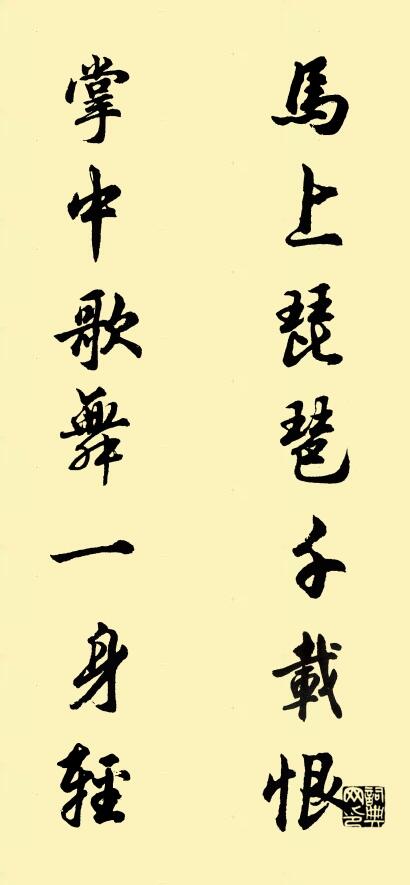 馬上琵琶千載恨
掌中歌舞一身輕
詞典網印